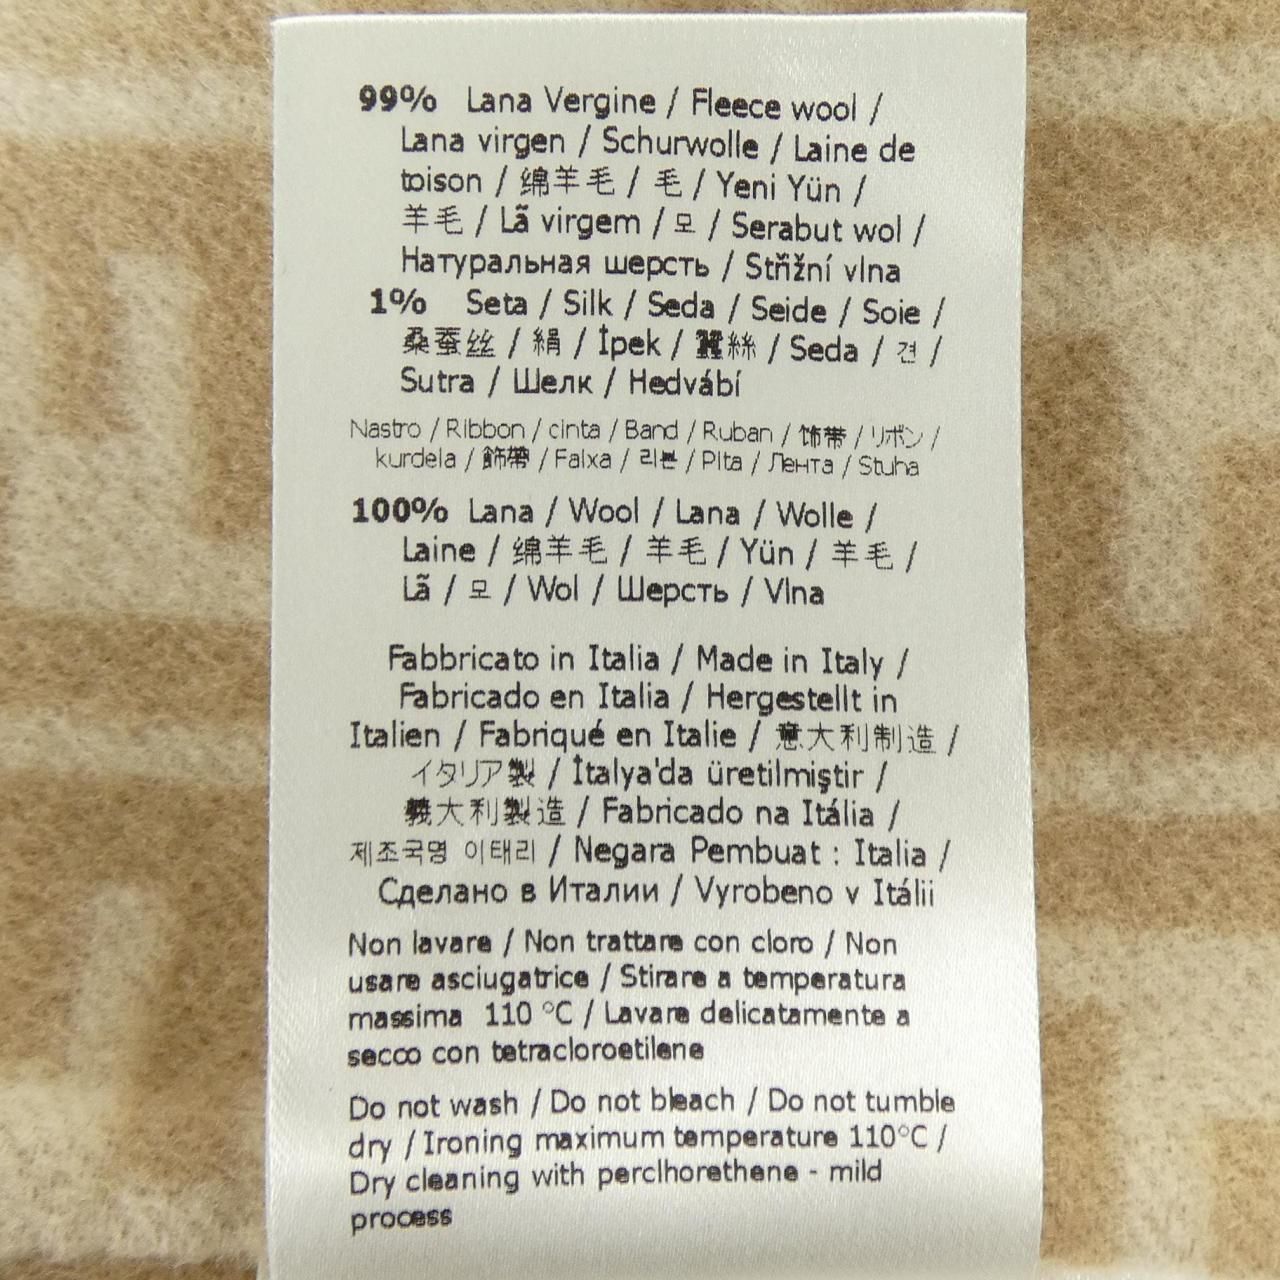 99% Lana Vergine / Fleece wool /
Lana virgen / Schurwolle / Laine de
toison / 绵羊毛 / 毛 / Yeni Yün /
羊毛 / Lã virgem / 모 / Serabut wol /
Натуральная шерсть / Stňžní vlna
1% Seta / Silk / Seda / Seide / Soie /
桑蚕丝 / 絹 / İpek / 蠶絲 / Seda / 견 /
Sutra / Шелк / Hedvábí
Nastro / Ribbon / cinta / Band / Ruban / 饰带 / リボン /
kurdela / 飾帶 / Faixa / 리본 / Pita / Лента / Stuha
100% Lana / Wool / Lana / Wolle /
Laine / 绵羊毛 / 羊毛 / Yün / 羊毛 /
Lã / 모 / Wol / Шерсть / Vlna
Fabbricato in Italia / Made in Italy /
Fabricado en Italia / Hergestellt in
Italien / Fabriqué en Italie / 意大利制造 /
イタリア製 / İtalya'da üretilmiştir /
義大利製造 / Fabricado na Itália /
제조국명 이태리 / Negara Pembuat : Italia /
Сделано в Италии / Vyrobeno v Itálii
Non lavare / Non trattare con cloro / Non
usare asciugatrice / Stirare a temperatura
massima 110 °C / Lavare delicatamente a
secco con tetracloroetilene
Do not wash / Do not bleach / Do not tumble
dry / Ironing maximum temperature 110°C /
Dry cleaning with perclhorethene - mild
process